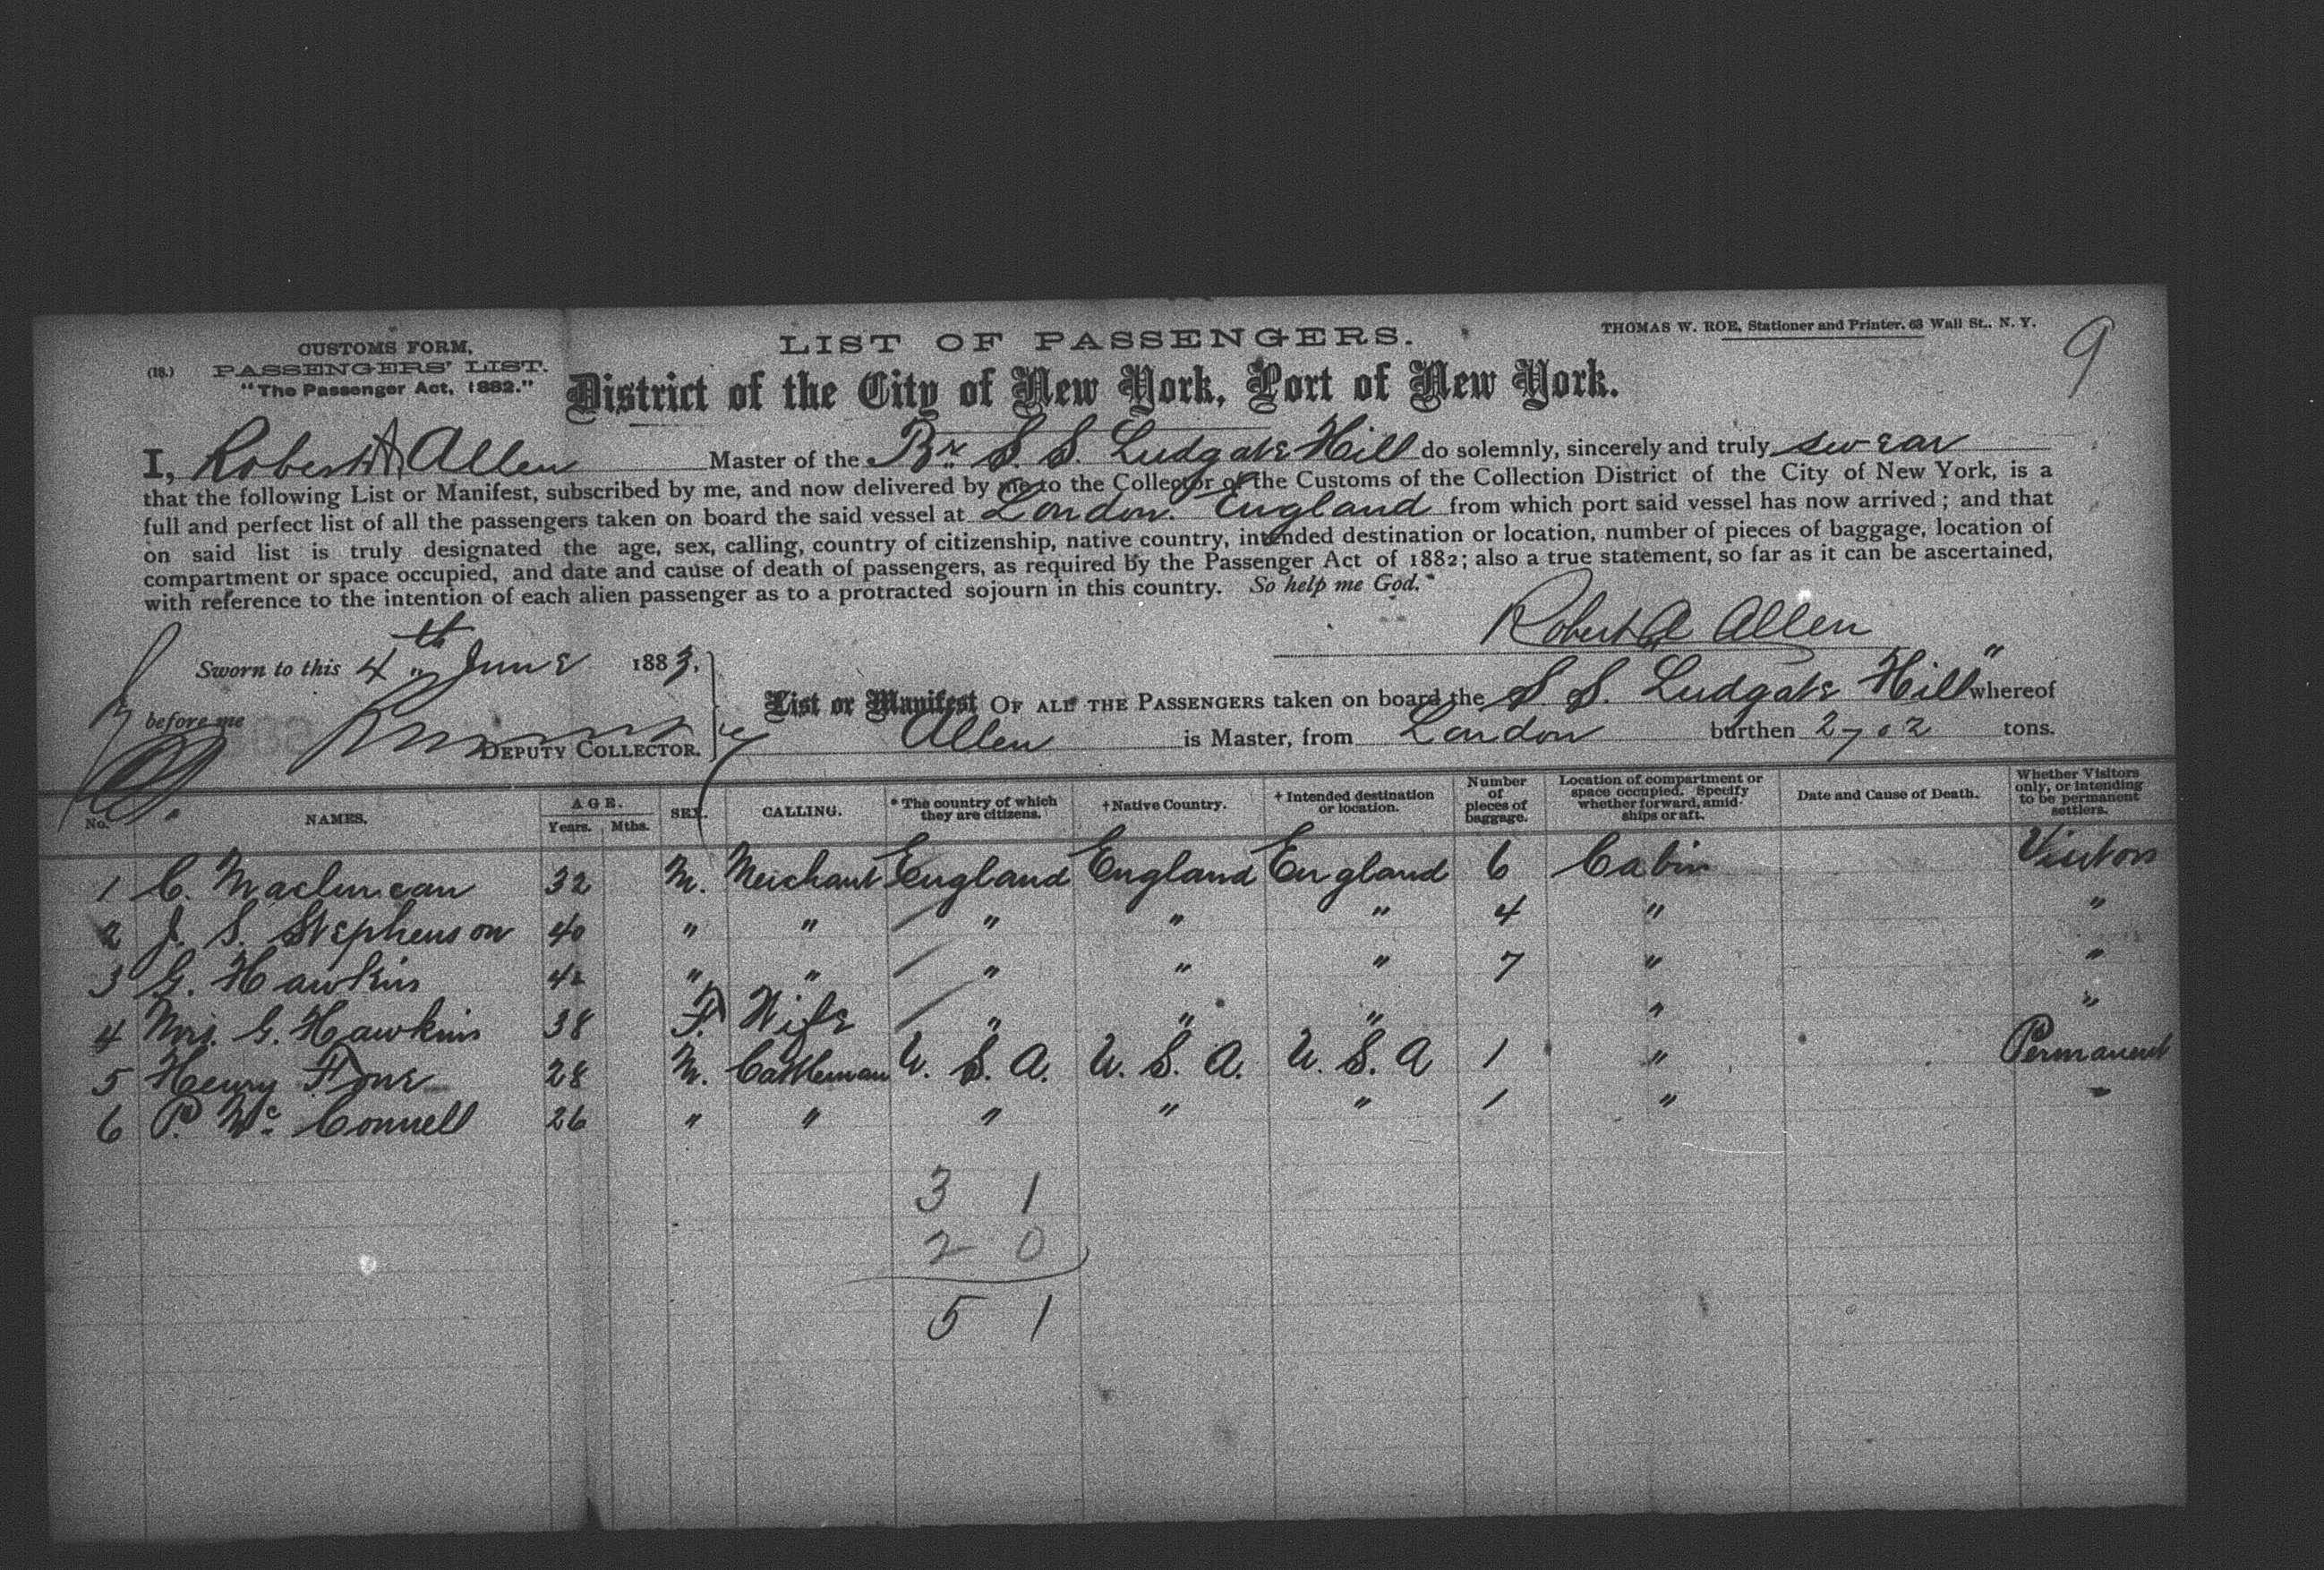 CUSTOMS FORM,
(18.) PASSENGERS' LIST.
"The Passenger Act, 1882."
LIST OF PASSENGERS.
THOMAS W. ROE, Stationer and Printer, 63 Wall St., N. Y.
9
District of the City of New York, Port of New York.
I, Robert A Allen Master of the Br. S. S. Ludgate Hill do solemnly, sincerely and truly swear
that the following List or Manifest, subscribed by me, and now delivered by me to the Collector of the Customs of the Collection District of the City of New York, is a
full and perfect list of all the passengers taken on board the said vessel at London. England from which port said vessel has now arrived; and that
on said list is truly designated the age, sex, calling, country of citizenship, native country, intended destination or location, number of pieces of baggage, location of
compartment or space occupied, and date and cause of death of passengers, as required by the Passenger Act of 1882; also a true statement, so far as it can be ascertained,
with reference to the intention of each alien passenger as to a protracted sojourn in this country. So help me God.
Robert A Allen
Sworn to this 4th June 1883,
before me
DEPUTY COLLECTOR.
List or Manifest OF ALL THE PASSENGERS taken on board the S. S. Ludgate Hill" whereof
Allen is Master, from London burthen 2702 tons.
No. NAMES. AGE. Years. Mths. SEX. CALLING. * The country of which they are citizens. † Native Country. † Intended destination or location. Number of pieces of baggage. Location of compartment or space occupied. Specify whether forward, amidships or aft. Date and Cause of Death. Whether Visitors only, or intending to be permanent settlers.
1 C. 32 M. Merchant England England England 6 Cabin Visitors
2 J. S. Stephenson 40 " " " " " 4 " "
3 G. Hawkins 42 " " " " " 7 " "
4 Mrs. G. Hawkins 38 F. Wife " " " " "
5 Henry 28 M. Cattleman U. S. A. U. S. A. U. S. A 1 " Permanent
6 P. Mc Connell 26 " " " " " 1 " "
3 1
2 0
5 1